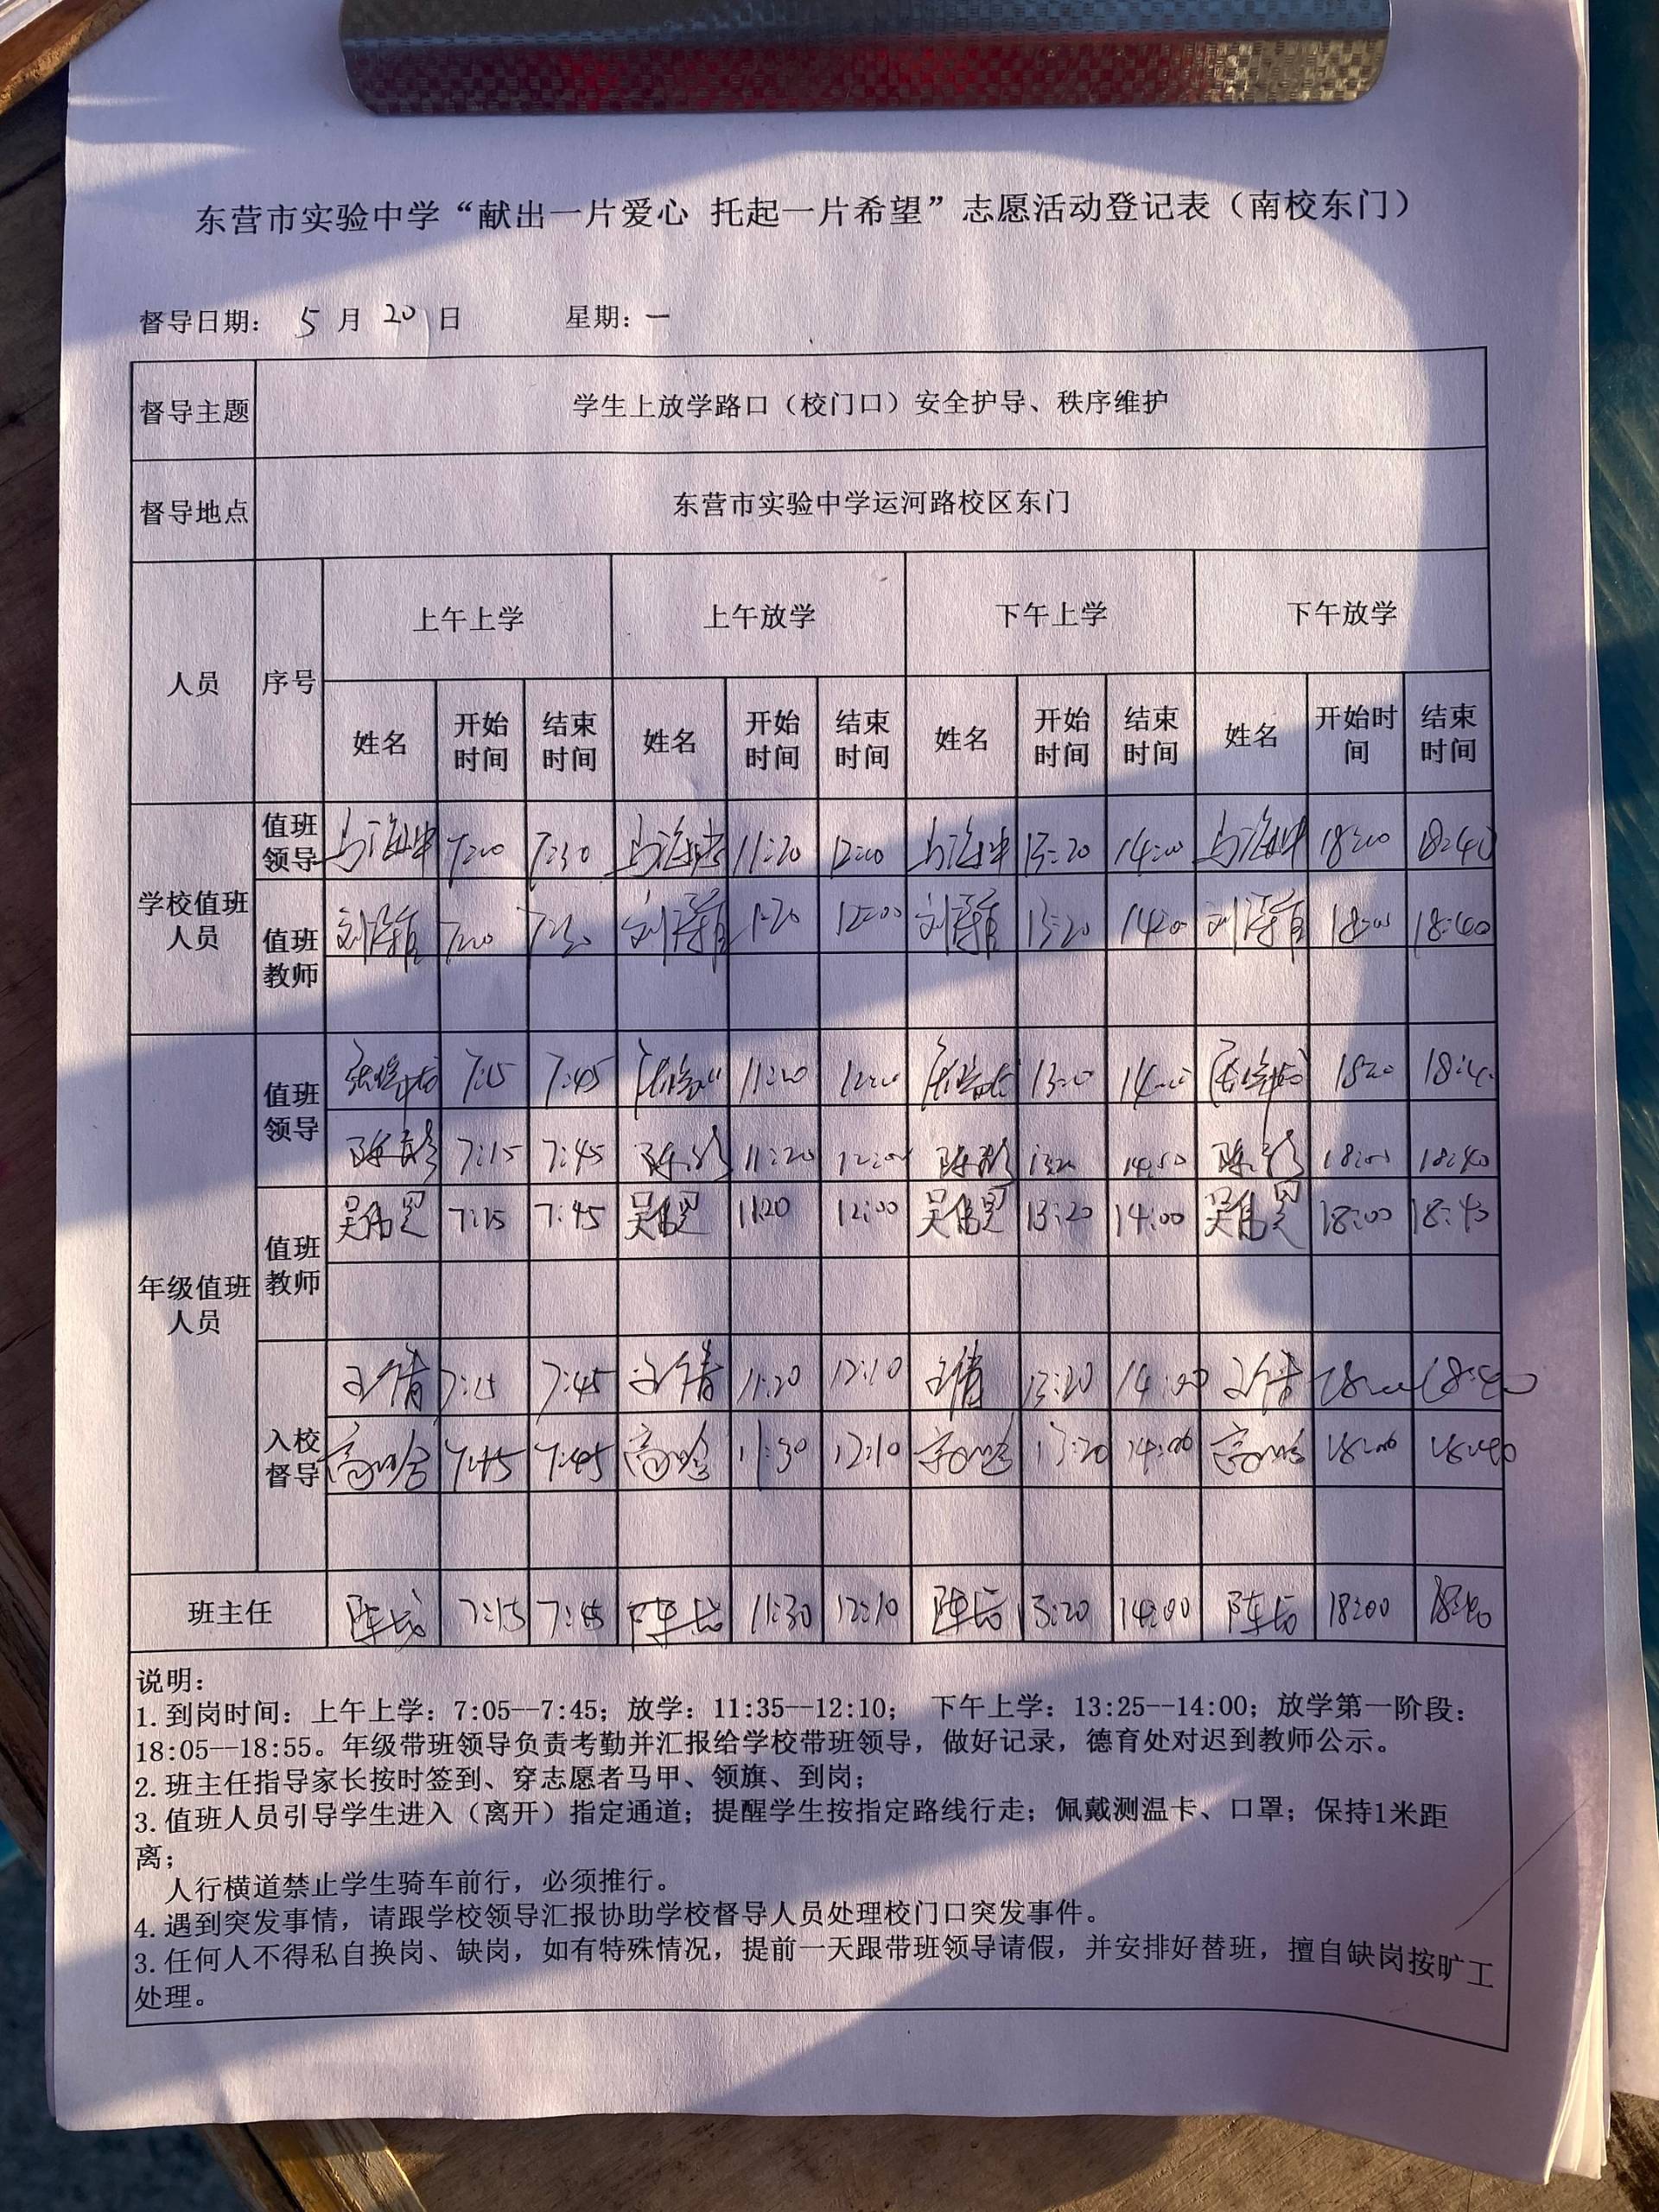 东营市实验中学“献出一片爱心 托起一片希望”志愿活动登记表（南校东门）
督导日期： 5 月 20 日 星期：一
督导主题 学生上放学路口（校门口）安全护导、秩序维护
督导地点 东营市实验中学运河路校区东门
人员 序号 上午上学 上午放学 下午上学 下午放学
姓名 开始时间 结束时间 姓名 开始时间 结束时间 姓名 开始时间 结束时间 姓名 开始时间 结束时间
学校值班人员
值班领导 7:00 7:30 11:20 12:00 13:20 14:00 18:00 18:40
值班教师 7:00 7:30 12:00 13:20 14:00 18:00 18:40
年级值班人员
值班领导 7:15 7:45 11:20 12:00 14:00 18:00
陈 7:15 7:45 陈 11:20 12:00 陈 陈 18:00 18:40
值班教师 吴 7:15 7:45 吴 1120 12:00 吴 13:20 14:00 吴 18:00 18:40
入校督导 王倩 7:15 7:45 王倩 11:20 12:10 王倩 13:20 14:00 王倩 18:00 18:40
高 7:45 高 11:30 12:10 高 13:20 14:00 高 18:00 18:40
班主任 陈 7:15 7:45 陈 11:30 12:10 陈 13:20 14:00 陈 18:00 18:40
说明：
1.到岗时间：上午上学：7:05--7:45；放学：11:35--12:10； 下午上学：13:25--14:00；放学第一阶段：
18:05--18:55。年级带班领导负责考勤并汇报给学校带班领导，做好记录，德育处对迟到教师公示。
2.班主任指导家长按时签到、穿志愿者马甲、领旗、到岗；
3.值班人员引导学生进入（离开）指定通道；提醒学生按指定路线行走；佩戴测温卡、口罩；保持1米距
离；
人行横道禁止学生骑车前行，必须推行。
4.遇到突发事情，请跟学校领导汇报协助学校督导人员处理校门口突发事件。
3.任何人不得私自换岗、缺岗，如有特殊情况，提前一天跟带班领导请假，并安排好替班，擅自缺岗按旷工
处理。